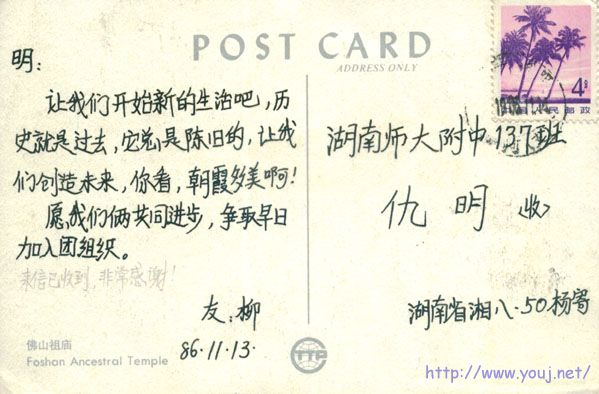 POST CARD
ADDRESS ONLY
明：
让我们开始新的生活吧，历
史就是过去，它总是陈旧的，让我
们创造未来，你看，朝霞多美啊！
愿我们俩共同进步，争取早日
加入团组织。
来信已收到，非常感谢！
友：柳
86.11.13.
佛山祖庙
Foshan Ancestral Temple
TTP
4分
民邮政
湖南师大附中137班
仇明 收
湖南省湘八·50杨寄
http://www.youj.net/